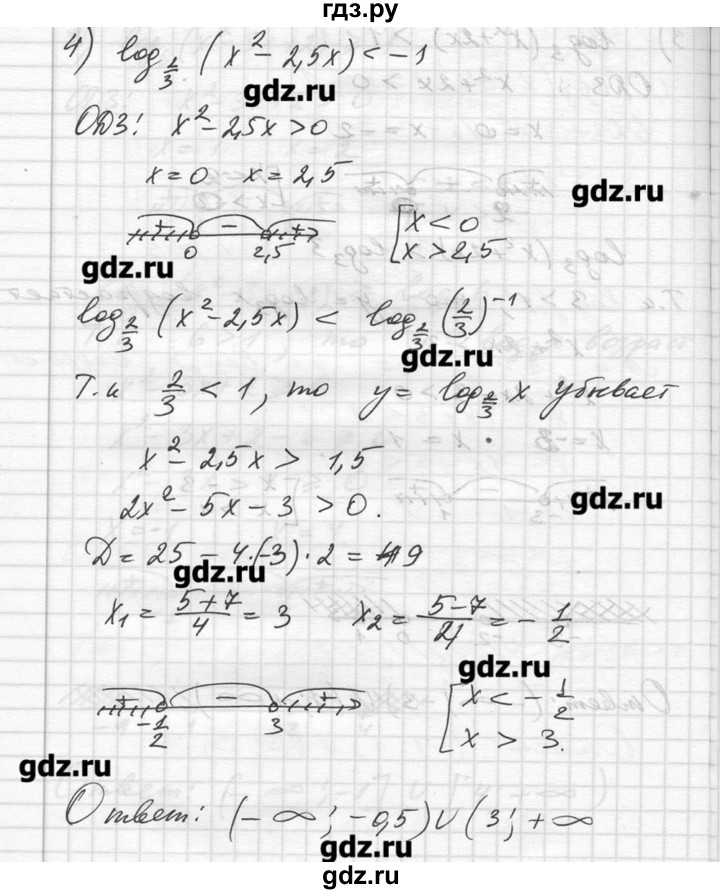 гдз.ру
4) log_{2/3} (x² - 2,5x) < -1
gdz.ru
ОДЗ! x² - 2,5x > 0
x = 0 x = 2,5
gdz.ru
+ - +
0 2,5
[ x < 0
x > 2,5
gdz.ru
log_{2/3} (x² - 2,5x) < log_{2/3} (2/3)^{-1}
gdz.ru
Т.к 2/3 < 1, то y = log_{2/3} x убывает
x² - 2,5x > 1,5
2x² - 5x - 3 > 0.
gdz.ru
D = 25 - 4·(-3)·2 = 49
gdz.ru
x₁ = (5+7)/4 = 3 x₂ = (5-7)/4 = -1/2
gdz.ru
+ - +
-1/2 3
[ x < -1/2
x > 3.
gdz.ru
Ответ: (-∞; -0,5) ∪ (3; +∞
gdz.ru
gdz.ru